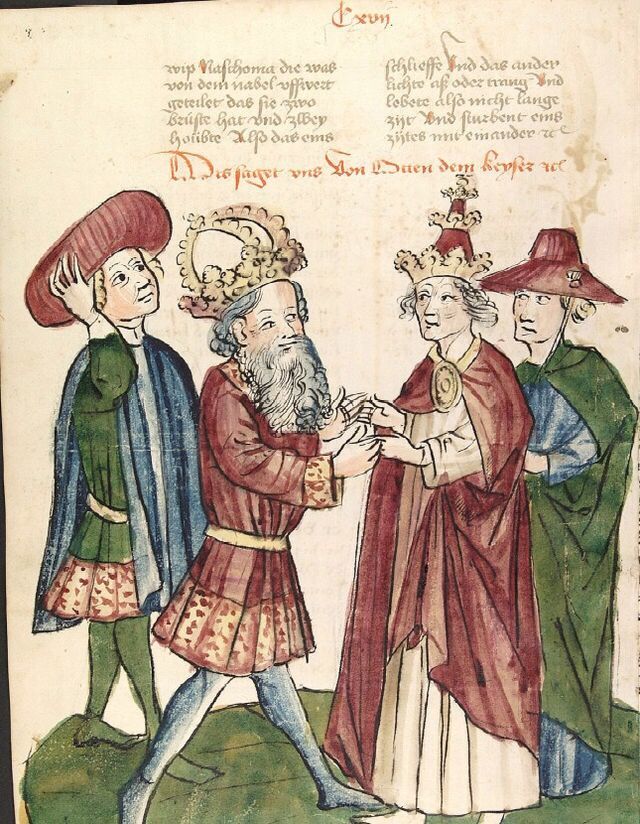 Cxvij
wip Naschoma die was
von dem nabel vffwert
geteilet das sie zwo
brüste hat vnd zwey
houbte Also das eins
schlieffe Vnd das ander
lichte aß oder trang Vnd
lebete also nicht lange
zijt Vnd sturbent eins
zijtes mit einander ꝛcͭ
Dis saget vns Von Otten dem keyser ꝛcͭ